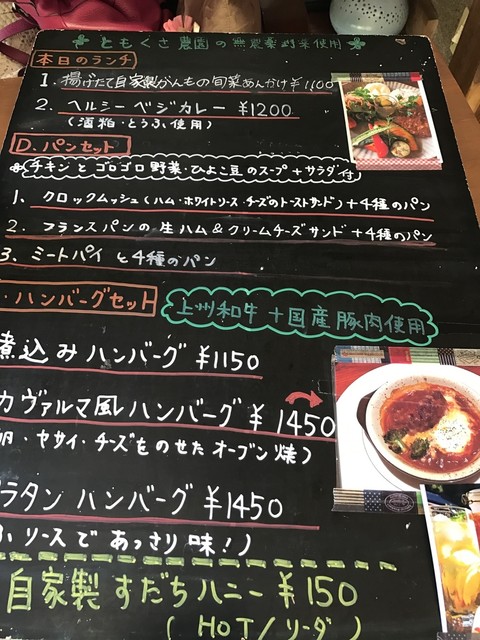 ともくさ 農園の無農薬野菜使用
本日のランチ
1. 揚げたて自家製がんもの旬菜あんかけ ¥1100
2. ヘルシーベジカレー ¥1200
(酒粕・とうふ使用)
D. パンセット
チキンとゴロゴロ野菜・ひよこ豆のスープ+サラダ付
1. クロックムッシュ(ハム・ホワイトソース チーズのトーストサンド)+4種のパン
2. フランスパンの生ハム&クリームチーズサンド+4種のパン
3. ミートパイと4種のパン
・ハンバーグセット
上州和牛+国産豚肉使用
煮込みハンバーグ ¥1150
カヴァルマ風ハンバーグ ¥1450
卵・ヤサイ・チーズをのせたオーブン焼)
ラタンハンバーグ ¥1450
ソースであっさり味!)
自家製すだちハニー ¥150
(HOT/ソーダ)